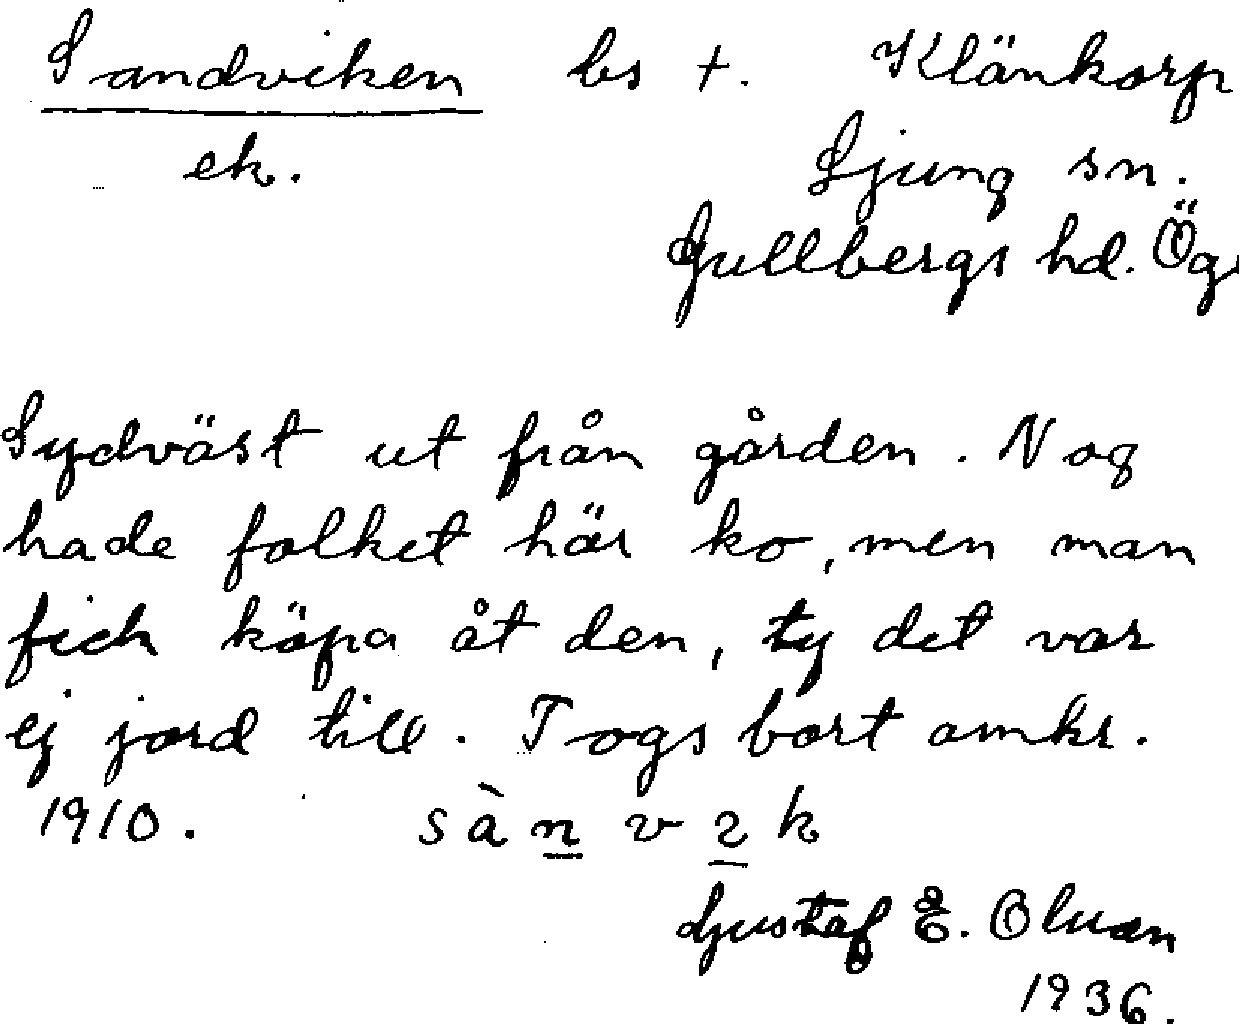 Sandviken bs +. Klänkorp
ek. Ljung sn.
Gullbergs hd. Ög
Sydväst ut från gården. Nog
hade folket här ko, men man
fick köpa åt den, ty det var
ej jord till. Togs bort omkr.
1910. sàn v2k
Gustaf E. Oluan
1936.